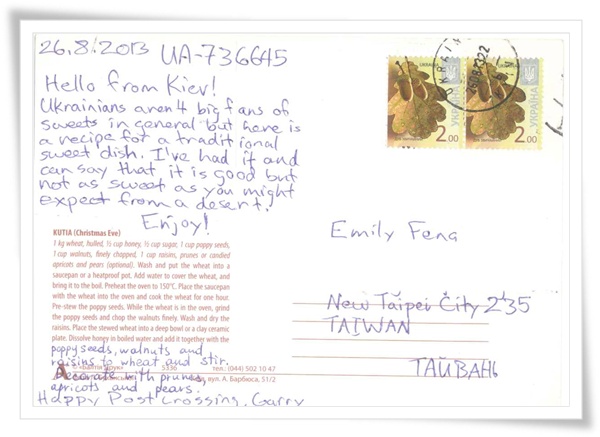 26.8.2013 UA-736645
Hello from Kiev!
Ukrainians aren't big fans of
sweets in general but here is
a recipe for a traditional
sweet dish. I've had it and
can say that it is good but
not as sweet as you might
expect from a desert.
Enjoy!
KUTIA (Christmas Eve)
1 kg wheat, hulled, ½ cup honey, ½ cup sugar, 1 cup poppy seeds,
1 cup walnuts, finely chopped, 1 cup raisins, prunes or candied
apricots and pears (optional). Wash and put the wheat into a
saucepan or a heatproof pot. Add water to cover the wheat, and
bring it to the boil. Preheat the oven to 150°C. Place the saucepan
with the wheat into the oven and cook the wheat for one hour.
Pre-stew the poppy seeds. While the wheat is in the oven, grind
the poppy seeds and chop the walnuts finely. Wash and dry the
raisins. Place the stewed wheat into a deep bowl or a clay ceramic
plate. Dissolve honey in boiled water and add it together with
poppyseeds, walnuts and
raisins to wheat and stir.
Decorate with prunes,
apricots and pears.
Happy Postcrossing. Garry
5336 тел.: (044) 502 10 47
вул. А. Барбюса, 51/2
УКРАЇНА
2.00
УКРАЇНА
2.00
Emily Feng
New Taipei City 235
TAIWAN
ТАЙВАНЬ